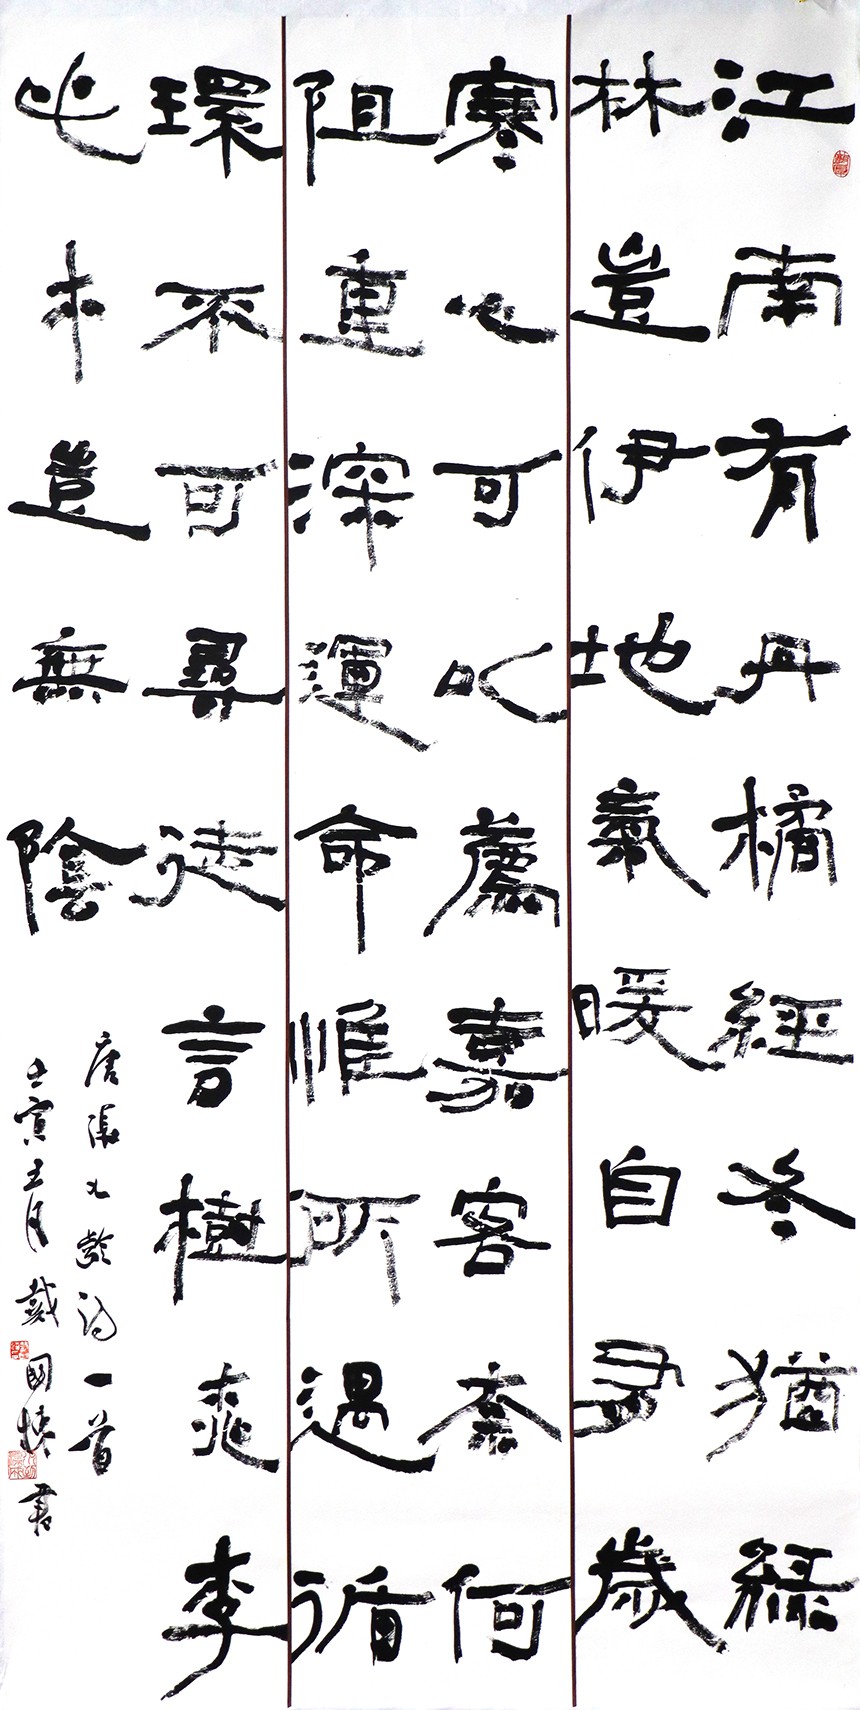 江南有丹橘經冬猶綠
林豈伊地氣暖自有歲
寒心可以薦嘉客奈何
阻重深運命惟所遇循
環不可尋徒言樹桃李
此木豈無陰
唐張九齡詩一首
壬寅月戴國書